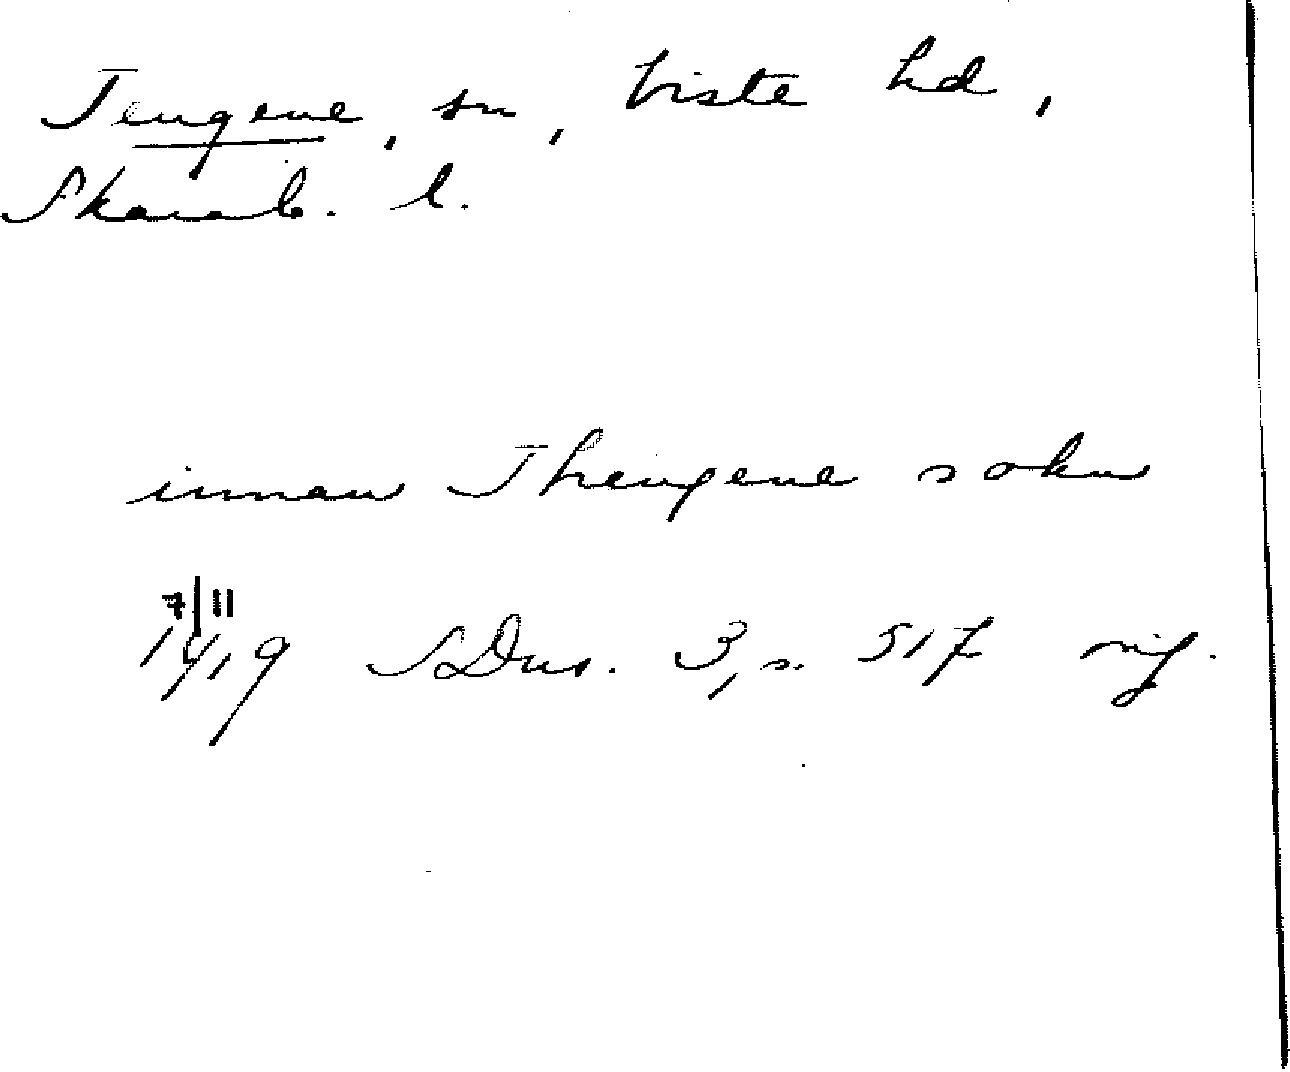 Tengene, sn, Viste hd,
Skarab. l.
innan Thengene sokn
7/11
1419 SDns. 3, s. 517